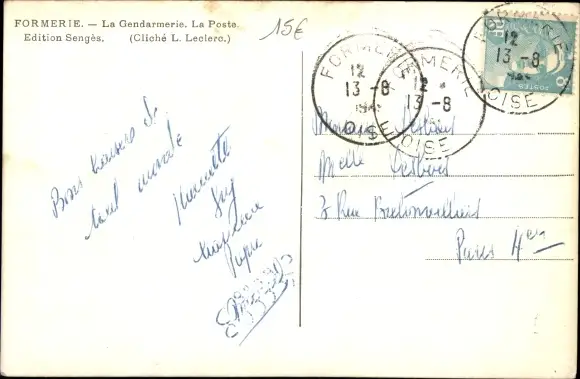 FORMERIE. — La Gendarmerie. La Poste.
Edition Sengès. (Cliché L. Leclerc.)
15€
FORMERIE
12
13 - 8
OISE
FORMERIE
12 *
13 - 8
OISE
12
13 - 8
OISE
POSTES
Bons baisers de
tout monde
Henriette
Guy
Papa
Melle
3 Rue Bretonvilliers
Paris 4em